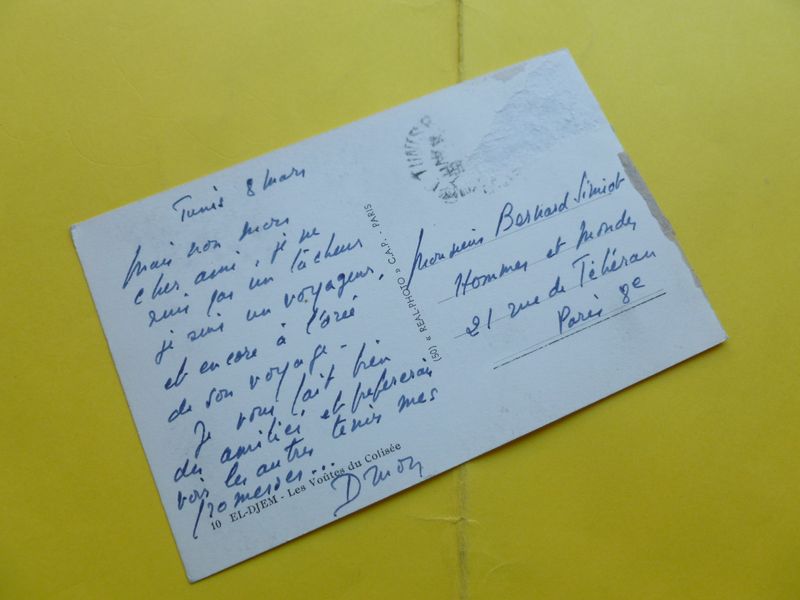 Tunis 8 Mars
Mais non mon
cher ami, je ne
suis pas un lâcheur
je suis un voyageur,
et encore à l'orée
de son voyage -
Je vous fait bien
des amitiés et préfèrerais
voir les autres tenir mes
promesses...
10 EL-DJEM - Les Voûtes du Colisée
(50) « REAL-PHOTO » C.A.P. - PARIS
Monsieur Bernard Simiot
Hommes et Mondes
21 rue de Téhéran
Paris 8e